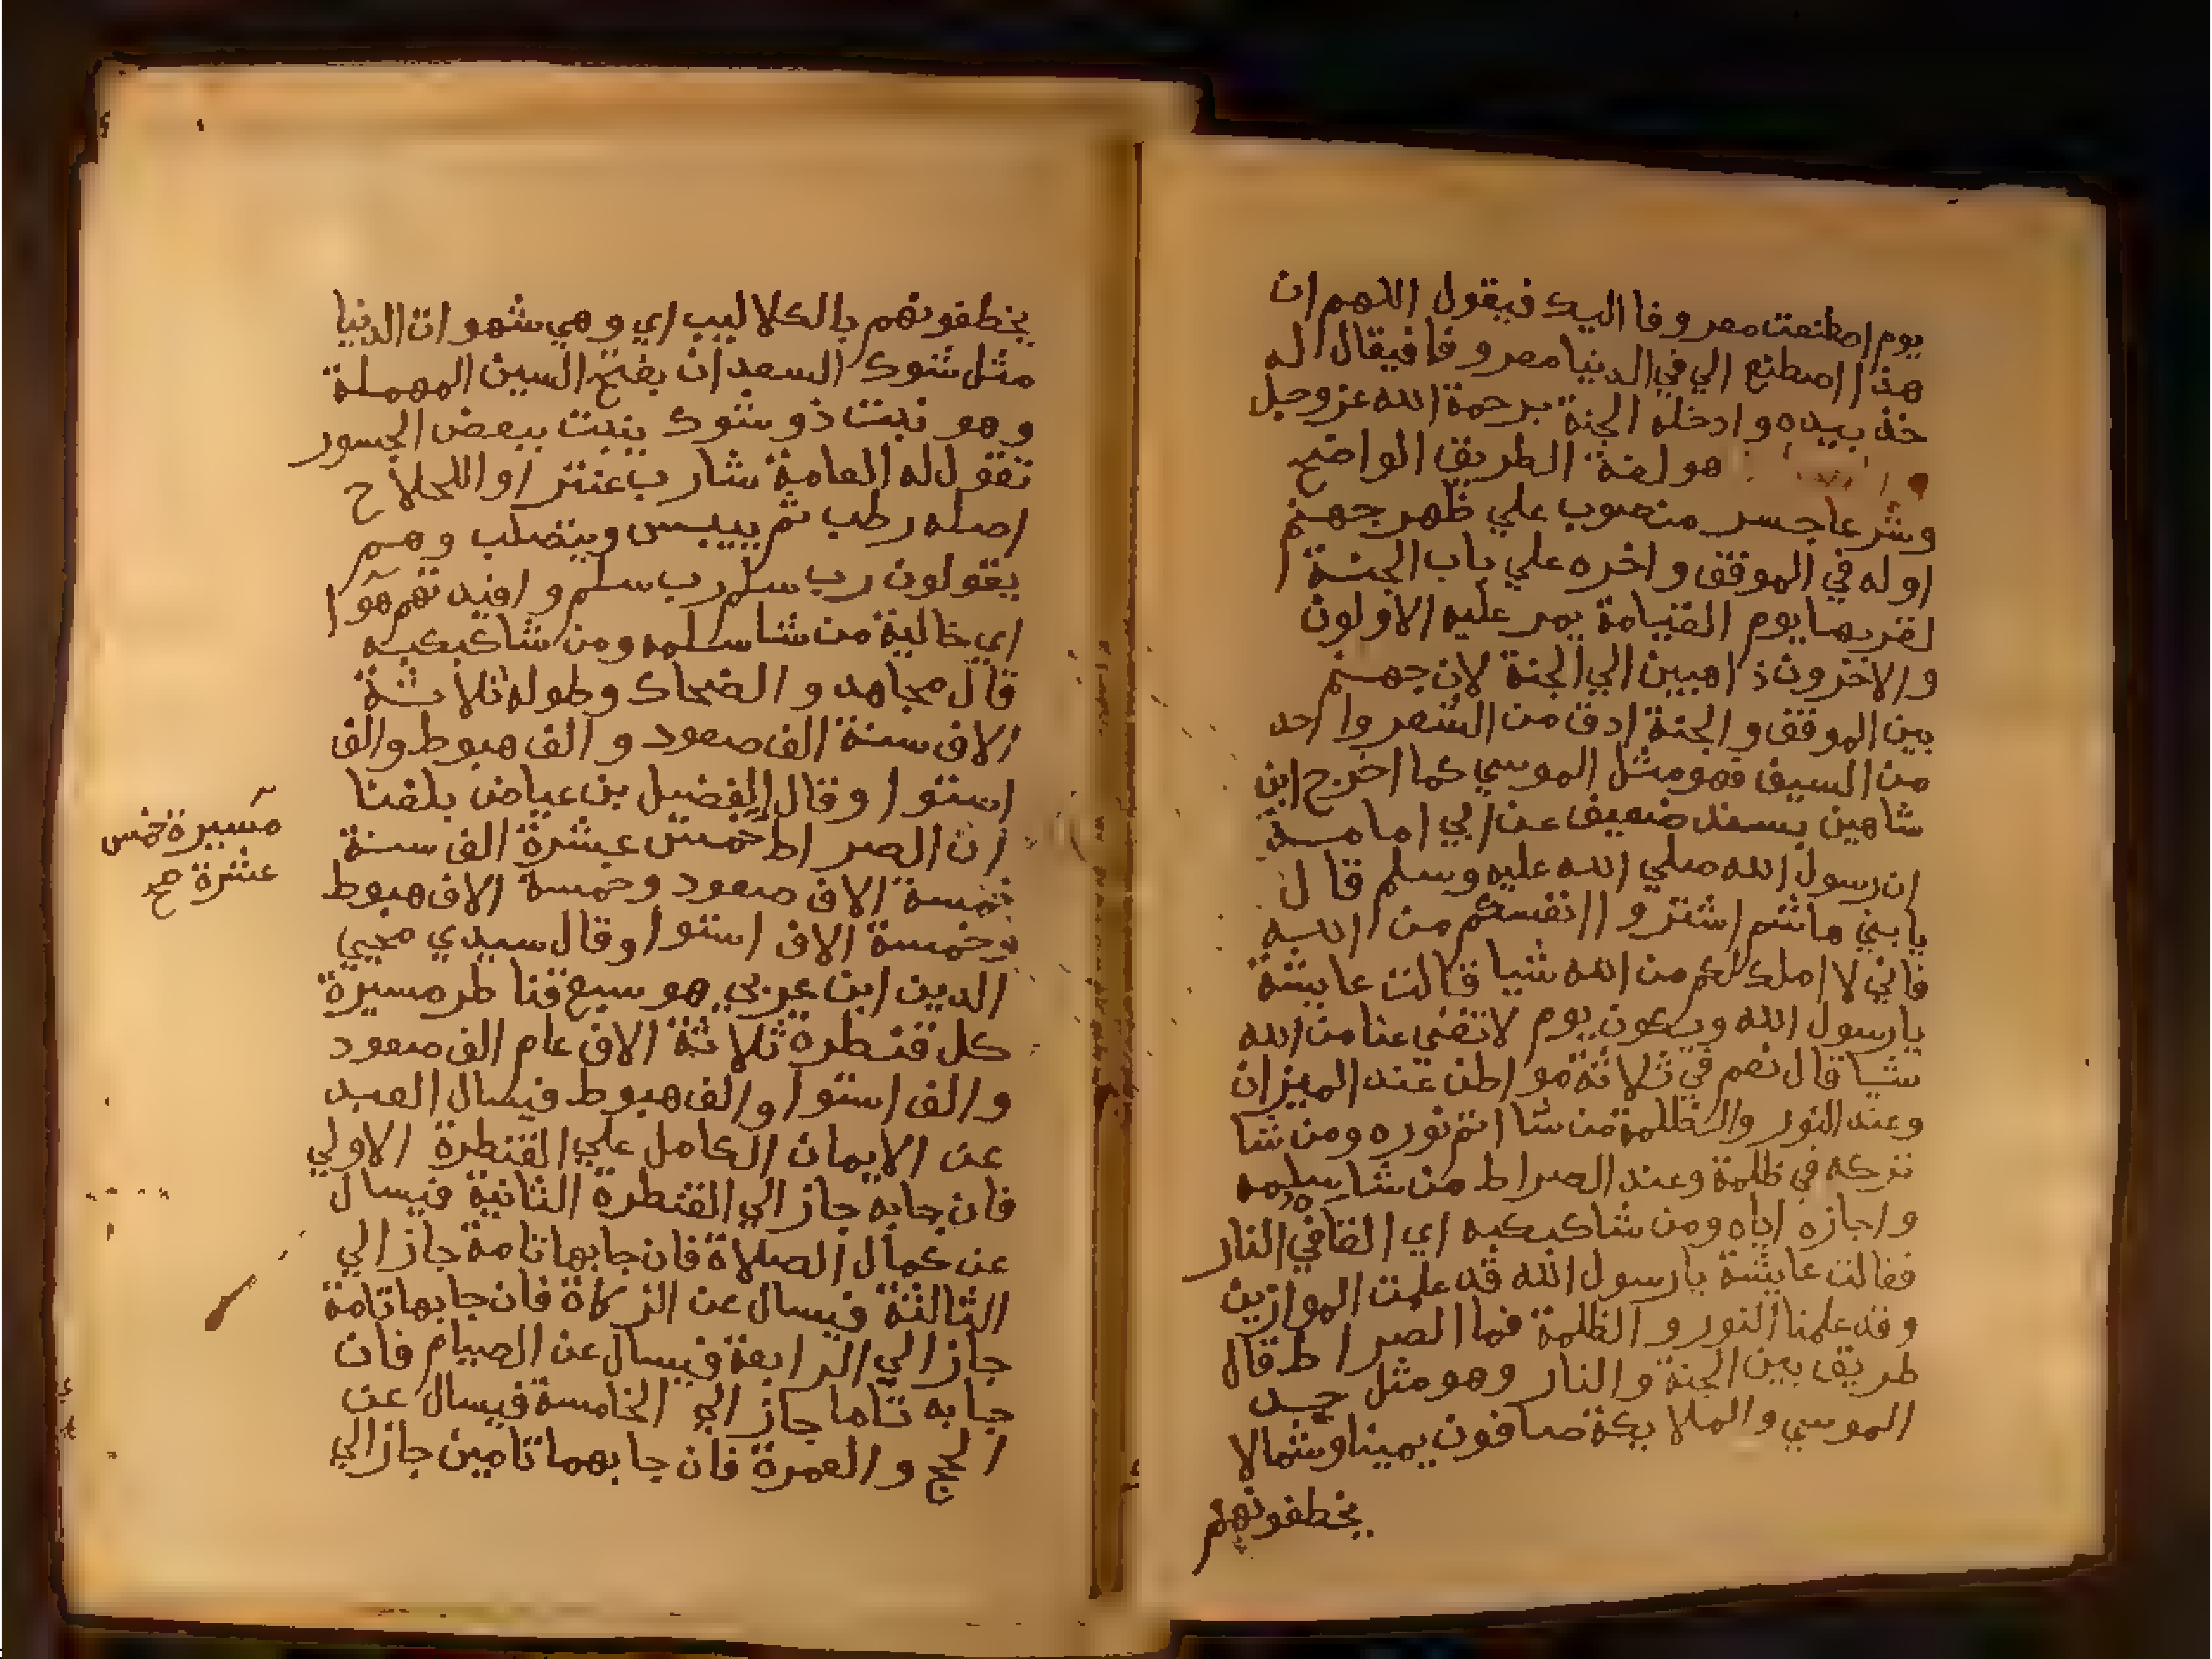 يوم اصطنعت معروفا اليك فيقول اللهم ان
هذا اصطنع الي في الدنيا معروفا فيقال له
خذ بيده وادخله الجنة برحمة الله عز وجل
هو لغة الطريق الواضح
وشرعا جسر منصوب علي ظهر جهنم
اوله في الموقف واخره علي باب الجنة
لقربها يوم القيامة يمر عليه الاولون
والاخرون ذاهبين الي الجنة لان جهنم
بين الموقف والجنة ادق من الشعر واحد
من السيف فهو مثل الموسي كما اخرج ابن
شاهين بسند ضعيف عن ابي امامة
ان رسول الله صلي الله عليه وسلم قال
يا بني هاشم اشتروا انفسكم من الله
فاني لا املك لكم من الله شيا قالت عايشة
يا رسول الله ويكون يوم لا تغني عنا من الله
شيا قال نعم في ثلاثة مواطن عند الميزان
وعند النور والظلمة من شا اتم نوره ومن شا
تركه في ظلمة وعند الصراط من شا سلمه
واجازه اياه ومن شا كبكبه اي القا في النار
فقالت عايشة يا رسول الله قد علمت الموازين
وقد علمنا النور والظلمة فما الصراط قال
طريق بين الجنة والنار وهو مثل حد
الموسي والملايكة صافون يمينا وشمالا
يخطفونهم
يخطفونهم بالكلاليب اي وهي شهوات الدنيا
مثل شوك السعدان بفتح السين المهملة
وهو نبت ذو شوك ينبت ببعض الجسور
تقول له العامة شارب عنتر او اللحلاح
اصله رطب ثم ييبس ويتصلب وهم
يقولون رب سلم رب سلم وافيدتهم هوا
اي خالية من شا سلمه ومن شا كبكبه
قال مجاهد والضحاك وطوله ثلاثة
الاف سنة الف صعود والف هبوط والف
استوا وقال الفضيل بن عياض بلغنا
ان الصراط خمس عشرة الف سنة
خمسة الاف صعود وخمسة الاف هبوط
وخمسة الاف استوا وقال سيدي محيي
الدين ابن عربي هو سبع قناطر مسيرة
كل قنطرة ثلاثة الاف عام الف صعود
والف استوا والف هبوط فيسال العبد
عن الايمان الكامل علي القنطرة الاولي
فان جا به جاز الي القنطرة الثانية فيسال
عن كمال الصلاة فان جا بها تامة جاز الي
الثالثة فيسال عن الزكاة فان جا بها تامة
جاز الي الرابعة فيسال عن الصيام فان
جا به تاما جاز الي الخامسة فيسال عن
الحج والعمرة فان جا بهما تامين جاز الي
مسيرة خمس
عشرة صح